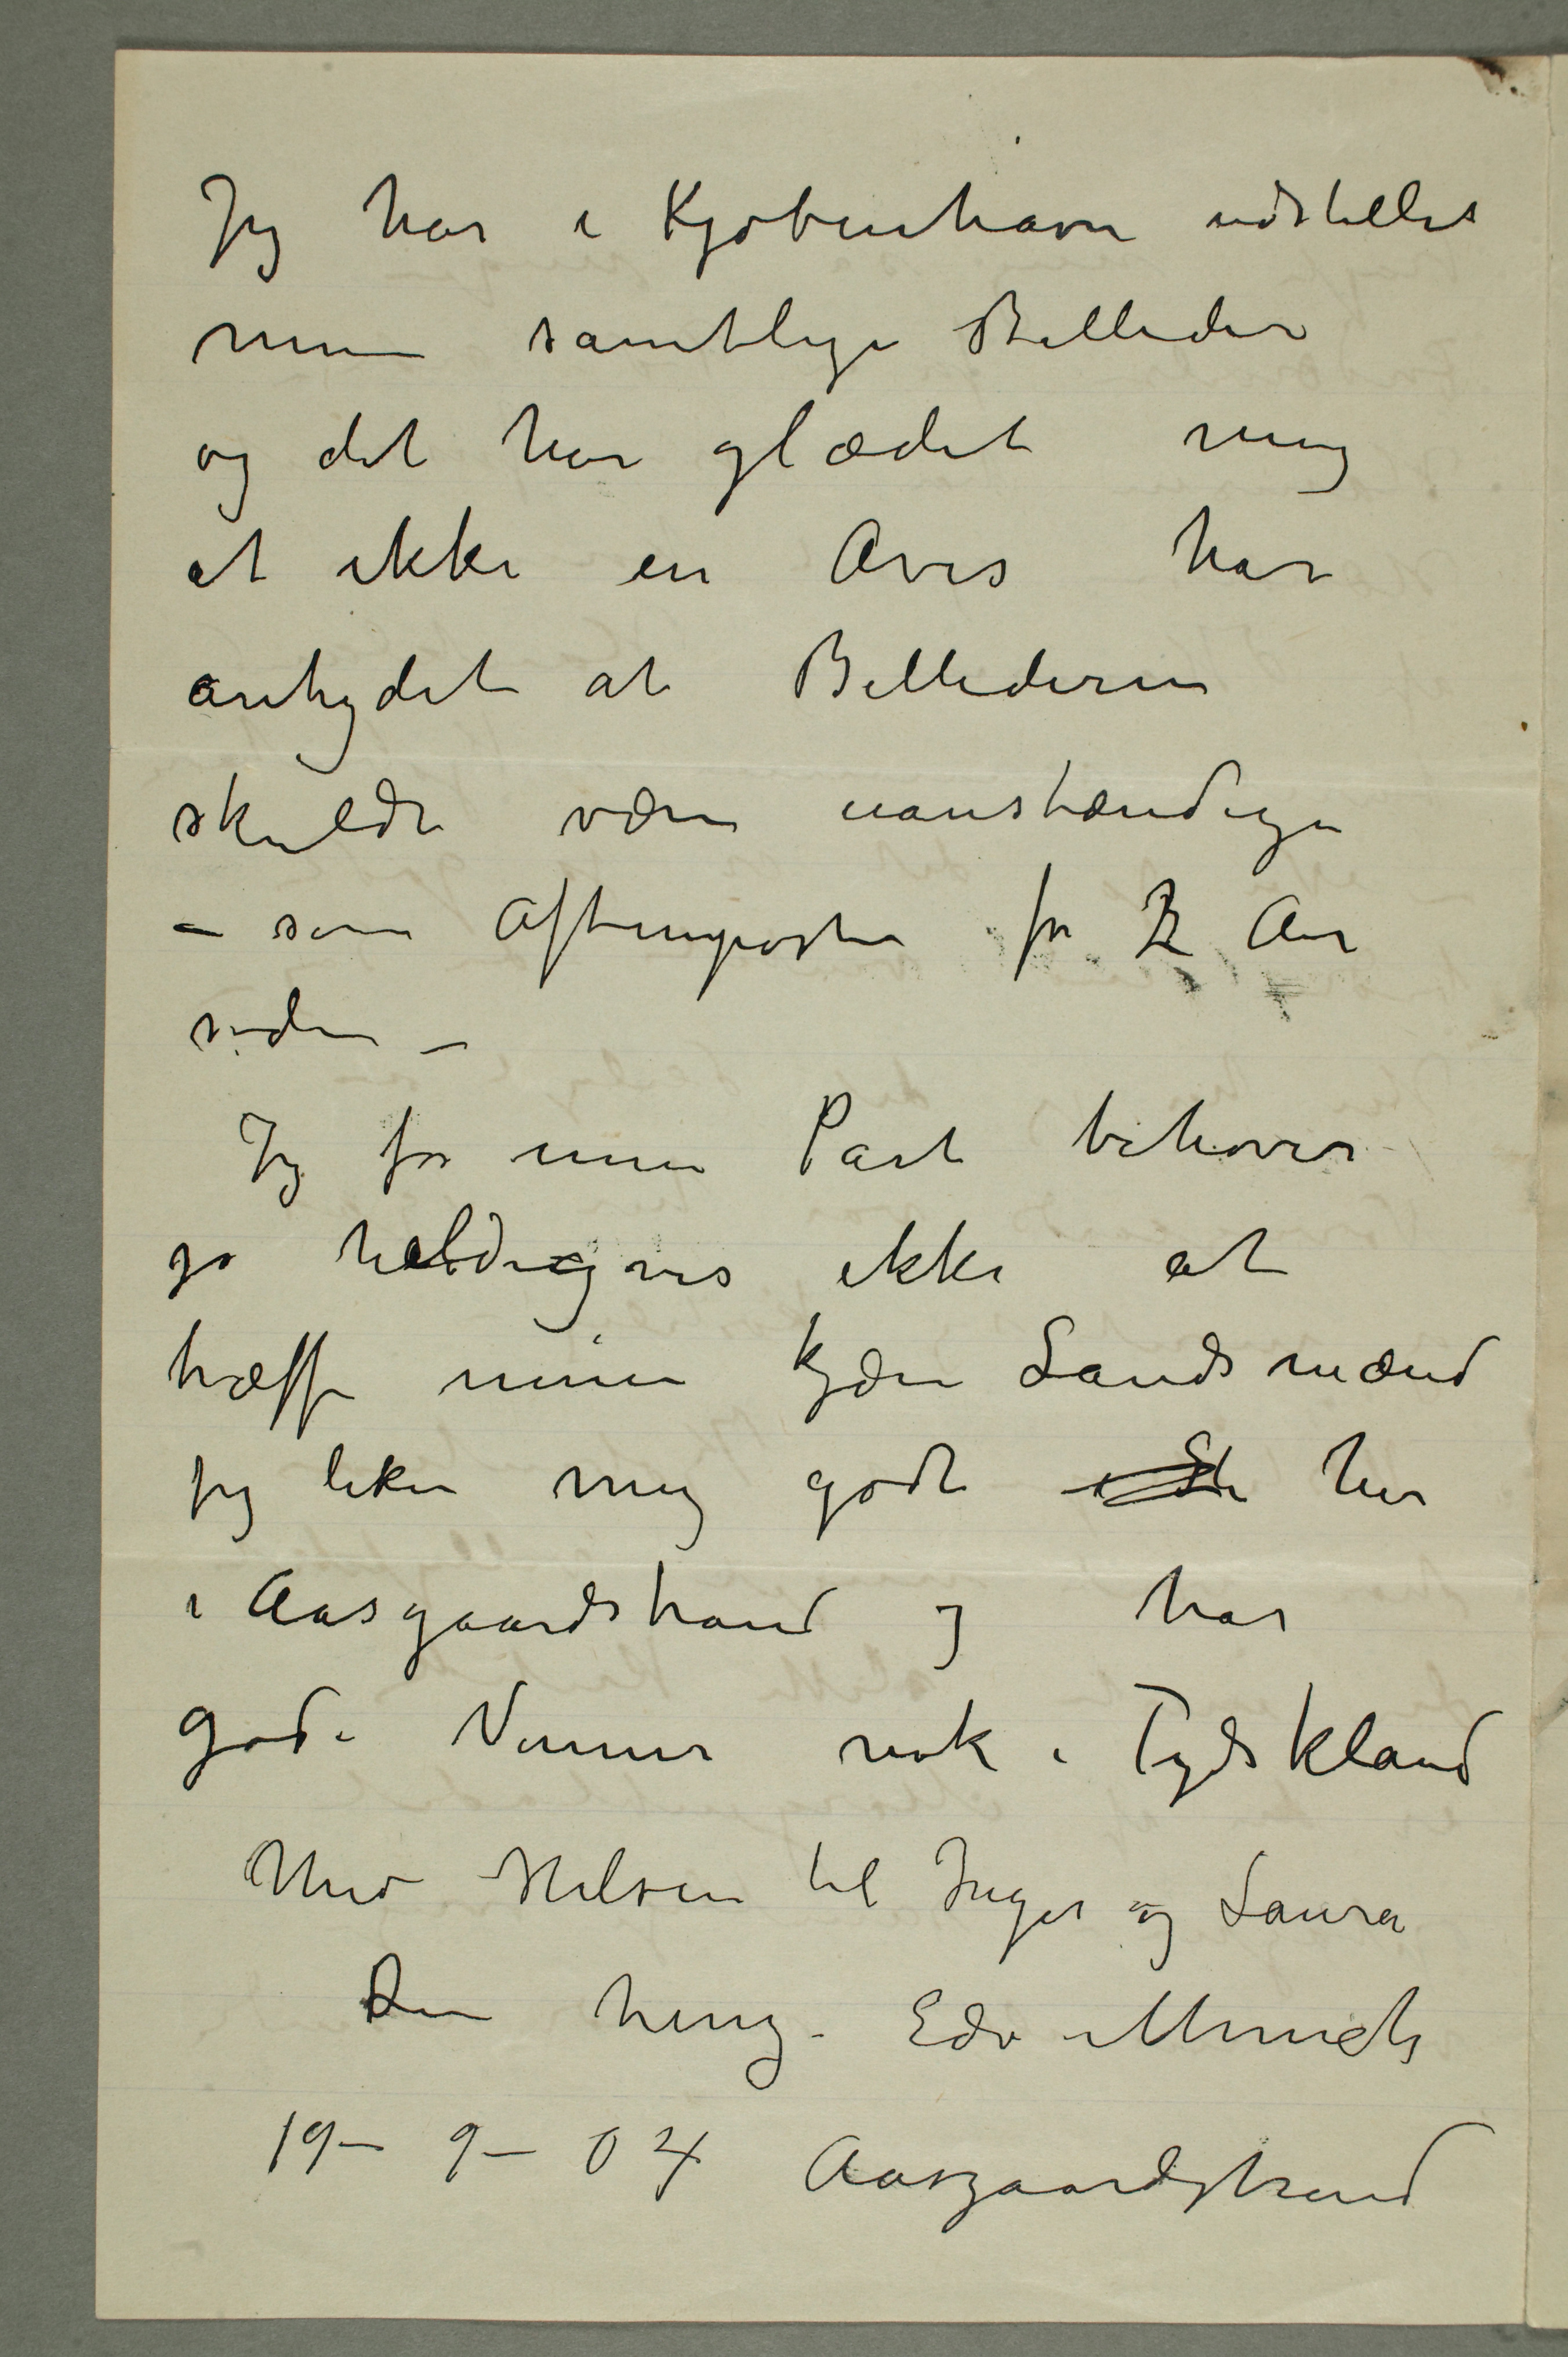 Jeg har i Kjøbenhavn udstillet
mine samtlige Billeder
og det har glædet mig
at ikke en Avis har
antydet at Billederne
skulde være uanstændige
– som Aftenposten for 2 Aar
siden –
Jeg for min Part behøver
jo heldigvis ikke at
træffe mine kjære Landsmænd
Jeg liker mig godt her
i Aasgaardstrand og har
gode Venner nok i Tydskland
Med Hilsen til Inger og Laura
Din heng. Edv Munch
19– 9– 04 Aasgaardstrand